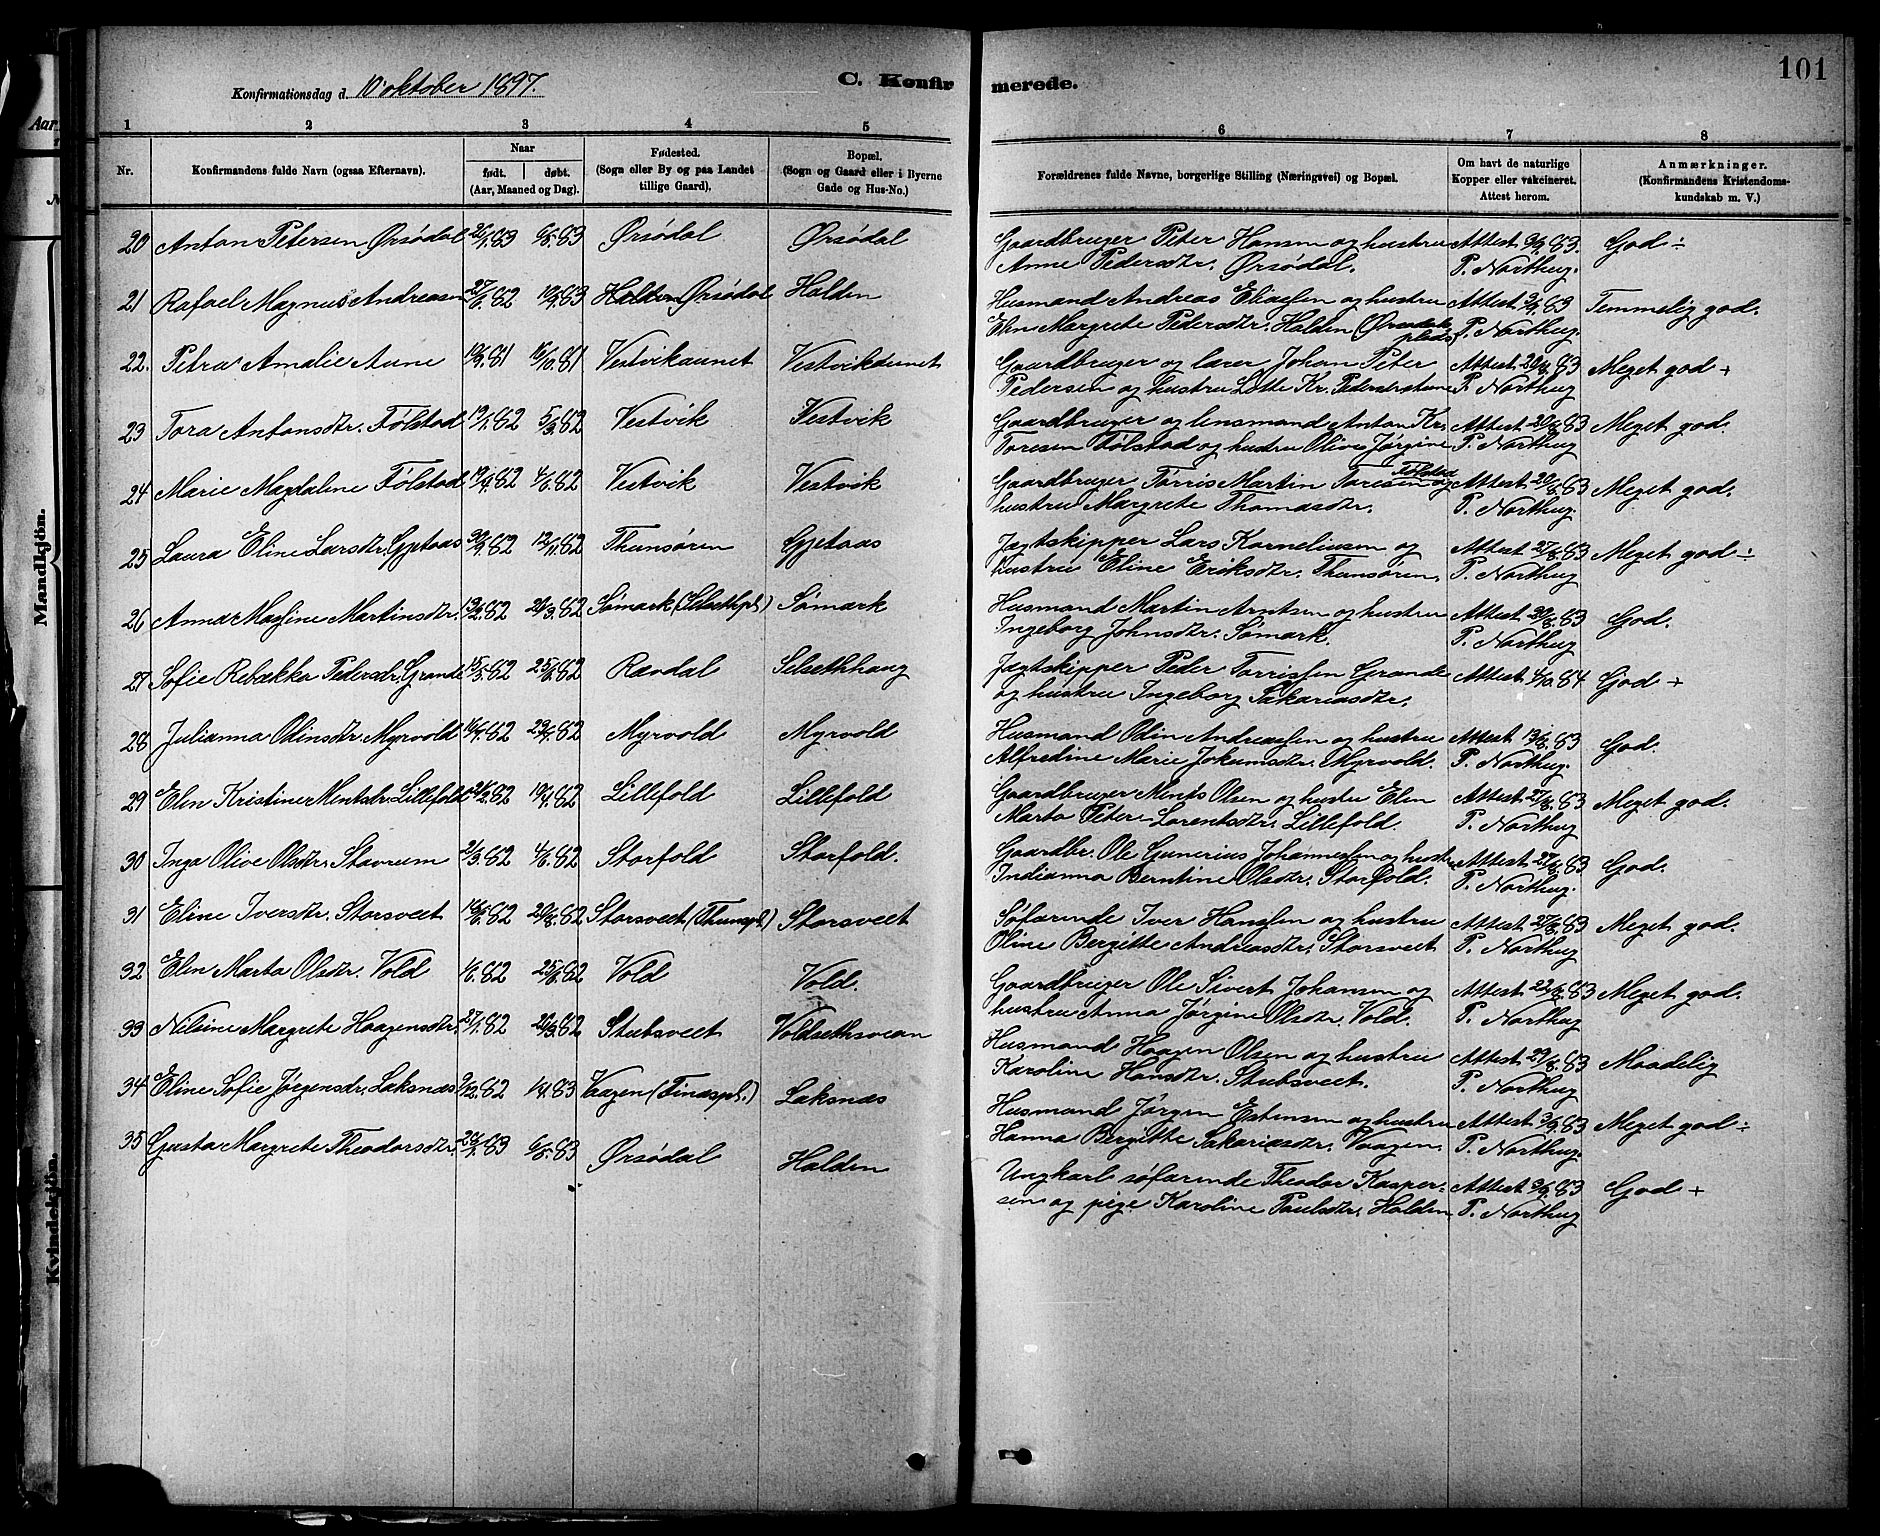 101
Konfirmationsdag d. 10 oktober 1897.
C. Konfirmerede.
1 2 3 4 5 6 7 8
Nr.
Konfirmandens fulde Navn (ogsaa Efternavn).
Naar
født. døbt.
(Aar, Maaned og Dag).
Fødested.
(Sogn eller By og paa Landet
tillige Gaard).
Bopæl.
(Sogn og Gaard eller i Byerne
Gade og Hus-No.)
Forældrenes fulde Navne, borgerlige Stilling (Næringsvei) og Bopæl.
Om havt de naturlige
Kopper eller vakcineret.
Attest herom.
Anmærkninger.
(Konfirmandens Kristendoms-
kundskab m. V.)
20 Anton Petersen Ørsödal 26/1.83 6/5.83 Ørsödal Ørsödal Gaardbruger Peter Hansen og hustru Attest 3/9.83. God ÷
Anne Pedersdtr. Ørsödal. P. Northug.
21 Rafael Magnus Andreasen 27/6.82 Ørsödal Halden Husmand Andreas Eliassen og hustru Attest 3/9.83 Temmelig god.
Elen Margrete Pedersdtr. Halden (Ørsödals plads) P. Northug.
22. Petra Amalie Aune 19/9.81 16/10.81 Vestvikaunet Vestvikaunet Gaardbruger og lærer Johan Peter Attest 20/8.83 Meget god +
Pedersen og hustru Lotte Kr. P. Northug
23 Tora Antonsdtr. Følstad 19/1.82 5/3.82 Vestvik Vestvik Gaardbruger og lensmand Anton Kr. Attest 20/8.83 Meget god.
Toresen Følstad og hustru Olive Jørgine P. Northug
24 Marie Magdaline Følstad 4/6.82 Vestvik Vestvik Gaardbruger Tørris Martin Toresen Følstad og Attest 20/8.83 Meget god.
hustru Margrete Thomasdtr. P. Northug.
25 Laura Eline Larsdtr. Gjetaas 30/9.82 12/11.82 Thunsøren Gjetaas Jægtskipper Lars Korneliusen og Attest 27/8.83 Meget god ÷
hustru Eline Eriksdtr. Thunsøren. P. Northug
26 Anna Masine Martinsdtr. 13/2.82 26/3.82 Sømark (Selsethpl.) Sømark Husmand Martin Arntsen og hustru Attest 20/8.83 God.
Ingeborg Johnsdtr. Sømark. P. Northug
27 Sofie Rebækka Pedersdr. Grande 15/5.82 25/6.82 Ravdal Selsethhaug Jægtskipper Peder Torrissen Grande Attest 6/10.84 God +
og hustru Ingeborg Sakariasdtr.
28 Julianna Odinsdtr. Myrvold Myrvold Myrvold Husmand Odin Andreassen og hustru Attest 13/8.83 God.
Alfredine Marie Jokumsdtr. Myrvold. P. Northug.
29 Elen Kristine Mentsdr. Lillefold Lillefold Lillefold Gaardbruger Ments Olsen og hustru Elen Attest 27/8.83 Meget god.
Marta Peter-Lorentsdtr. Lillefold. P. Northug
30 Inga Olive Olsdtr. Stavrum 2/3.82 4/6.82 Storfold Storfold. Gaardbr. Ole Gunerius Johannessen og hustru Attest 27/8.83 God.
Indianna Berntine Olsdtr. Storfold. P. Northug.
31 Eline Iversdtr. Storsveet 16/6.82 20/8.82 Storsveet (Thunspl.) Storsveet Søfarende Iver Hanssen og hustru Attest 27/8.83 Meget god.
Oline Bergitte Andreasdtr. Storsveet P. Northug
32 Elen Marta Olsdtr. Vold 1/6.82 25/6.82 Vold Vold. Gaardbruger Ole Sivert Johansen og Attest 22/8.83 Meget god.
hustru Anna Jørgine Olsdtr. Vold. P. Northug
33 Nelsine Margrete Haagensdtr. 27/1.82 26/3.82 Stubsveet Voldsethsvean Husmand Haagen Olsen og hustru Attest 29/8.83 Maadelig
Karoline Hansdtr. Stubsveet. P. Northug
34 Eline Sofie Jørgensdr. Laksnæs 9/12.82 1/4.83 Vaagen (Finaspl.) Laksnæs Husmand Jørgen Estensen og hustru Attest 3/9.83 Meget god ÷
Hanna Bergitte Sakariasdtr. Vaagen. P. Northug.
35 Gusta Margrete Theodorsdtr. 6/5.83 Ørsödal Halden Ungkarl søfarende Theodor Kasper- Attest 3/9.83 God +
sen og pige Karoline Paulsdtr. Halden P. Northug
Aar
Mandkjön.
Kvindekjön.